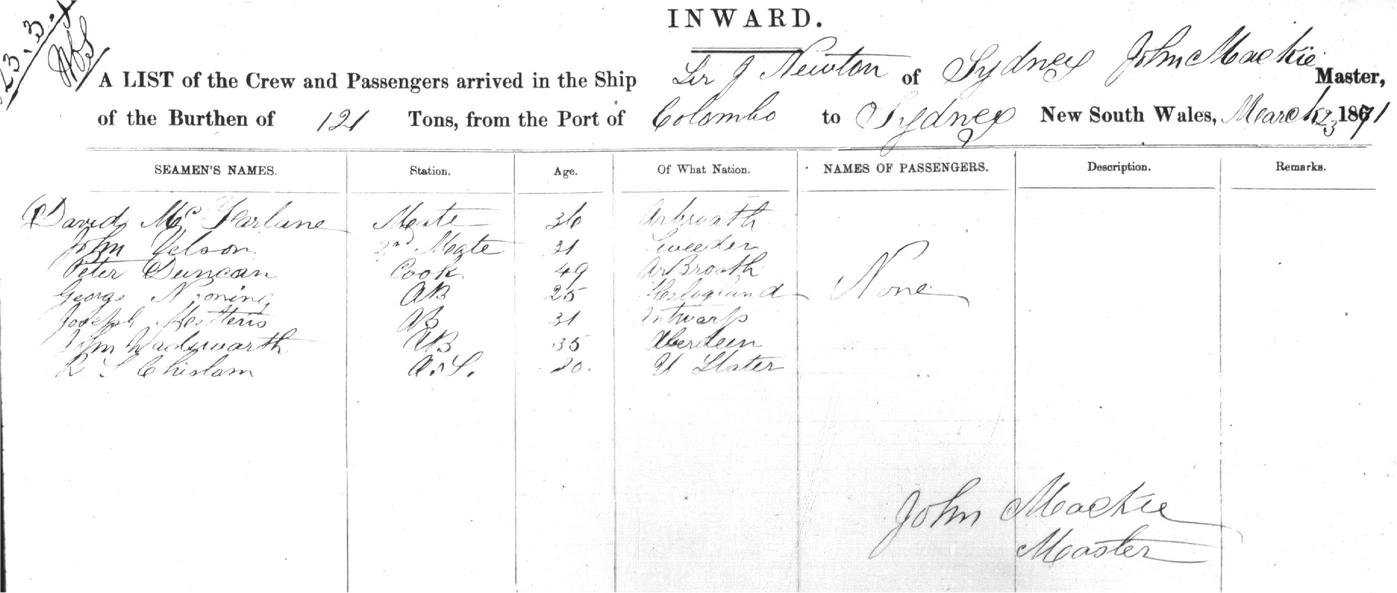 23.3.
INWARD.
A LIST of the Crew and Passengers arrived in the Ship Sir J Newton of Sydney John Mackie Master,
of the Burthen of 121 Tons, from the Port of Colombo to Sydney New South Wales, March 23 1871
SEAMEN'S NAMES. Station. Age. Of What Nation. NAMES OF PASSENGERS. Description. Remarks.
David Mc Farlane Mate 36 Arbroath
John Nelson 2nd Mate 31 Sweeden
Peter Duncan Cook 49 ArBroath
George AB 25 None
Joseph AB 31 Antwarp
Wm Wadsworth AB 35 Aberdeen
R S Chislam O.S. 20. U States
John Mackie
Master